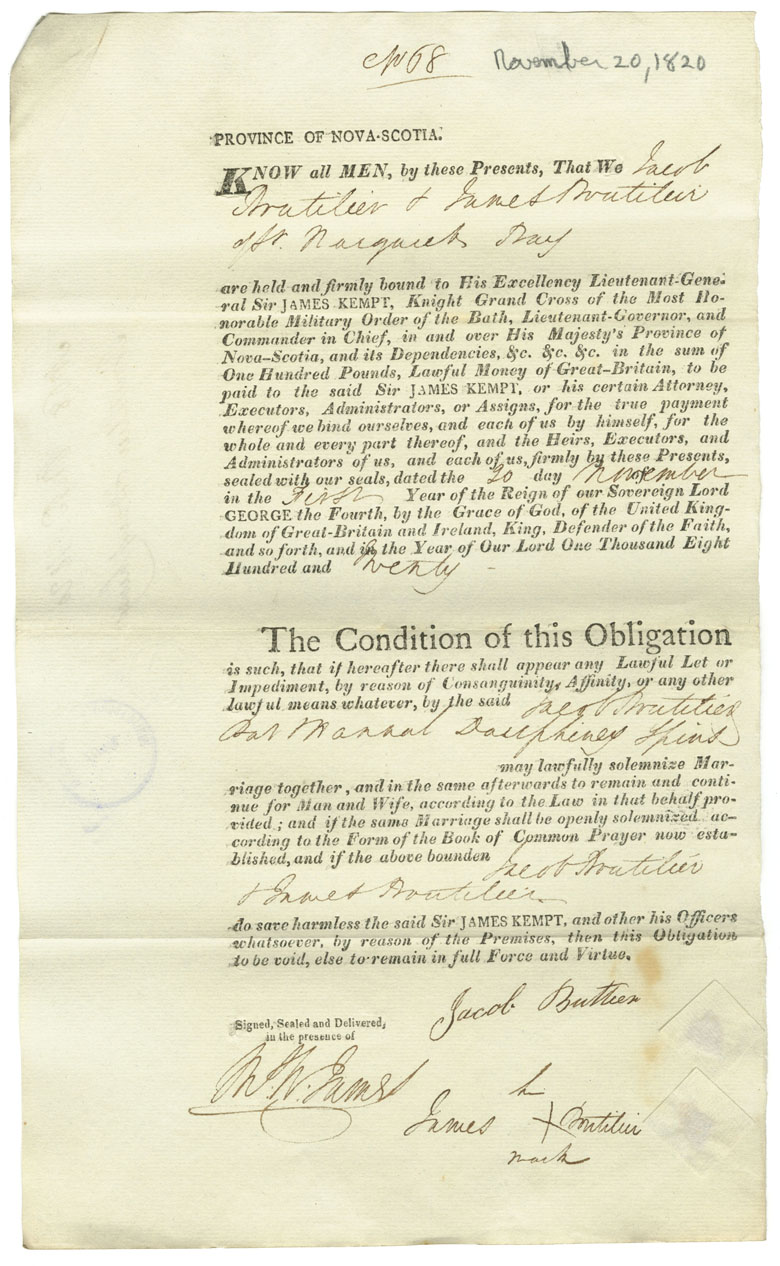 No 68
November 20, 1820
PROVINCE OF NOVA-SCOTIA.
KNOW all MEN, by these Presents, That We Jacob
Boutilier & James Boutilier
of St. Margarets Bay
are held and firmly bound to His Excellency Lieutenant-Gene-
ral Sir JAMES KEMPT, Knight Grand Cross of the Most Ho-
norable Military Order of the Bath, Lieutenant-Governor, and
Commander in Chief, in and over His Majesty's Province of
Nova-Scotia, and its Dependencies, &c. &c. &c. in the sum of
One Hundred Pounds, Lawful Money of Great-Britain, to be
paid to the said Sir JAMES KEMPT, or his certain Attorney,
Executors, Administrators, or Assigns, for the true payment
whereof we bind ourselves, and each of us by himself, for the
whole and every part thereof, and the Heirs, Executors, and
Administrators of us, and each of us, firmly by these Presents,
sealed with our seals, dated the 20 day November
in the First Year of the Reign of our Sovereign Lord
GEORGE the Fourth, by the Grace of God, of the United King-
dom of Great-Britain and Ireland, King, Defender of the Faith,
and so forth, and in the Year of Our Lord One Thousand Eight
Hundred and Twenty -
The Condition of this Obligation
is such, that if hereafter there shall appear any Lawful Let or
Impediment, by reason of Consanguinity, Affinity, or any other
lawful means whatever, by the said Jacob Boutilier
may lawfully solemnize Mar-
riage together, and in the same afterwards to remain and conti-
nue for Man and Wife, according to the Law in that behalf pro-
vided; and if the same Marriage shall be openly solemnized ac-
cording to the Form of the Book of Common Prayer now esta-
blished, and if the above bounden Jacob Boutilier
& James Boutilier
do save harmless the said Sir JAMES KEMPT, and other his Officers
whatsoever, by reason of the Premises, then this Obligation
to be void, else to remain in full Force and Virtue.
Jacob Buttlier
Signed, Sealed and Delivered,
in the presence of
James
his
James X Boutilier
mark